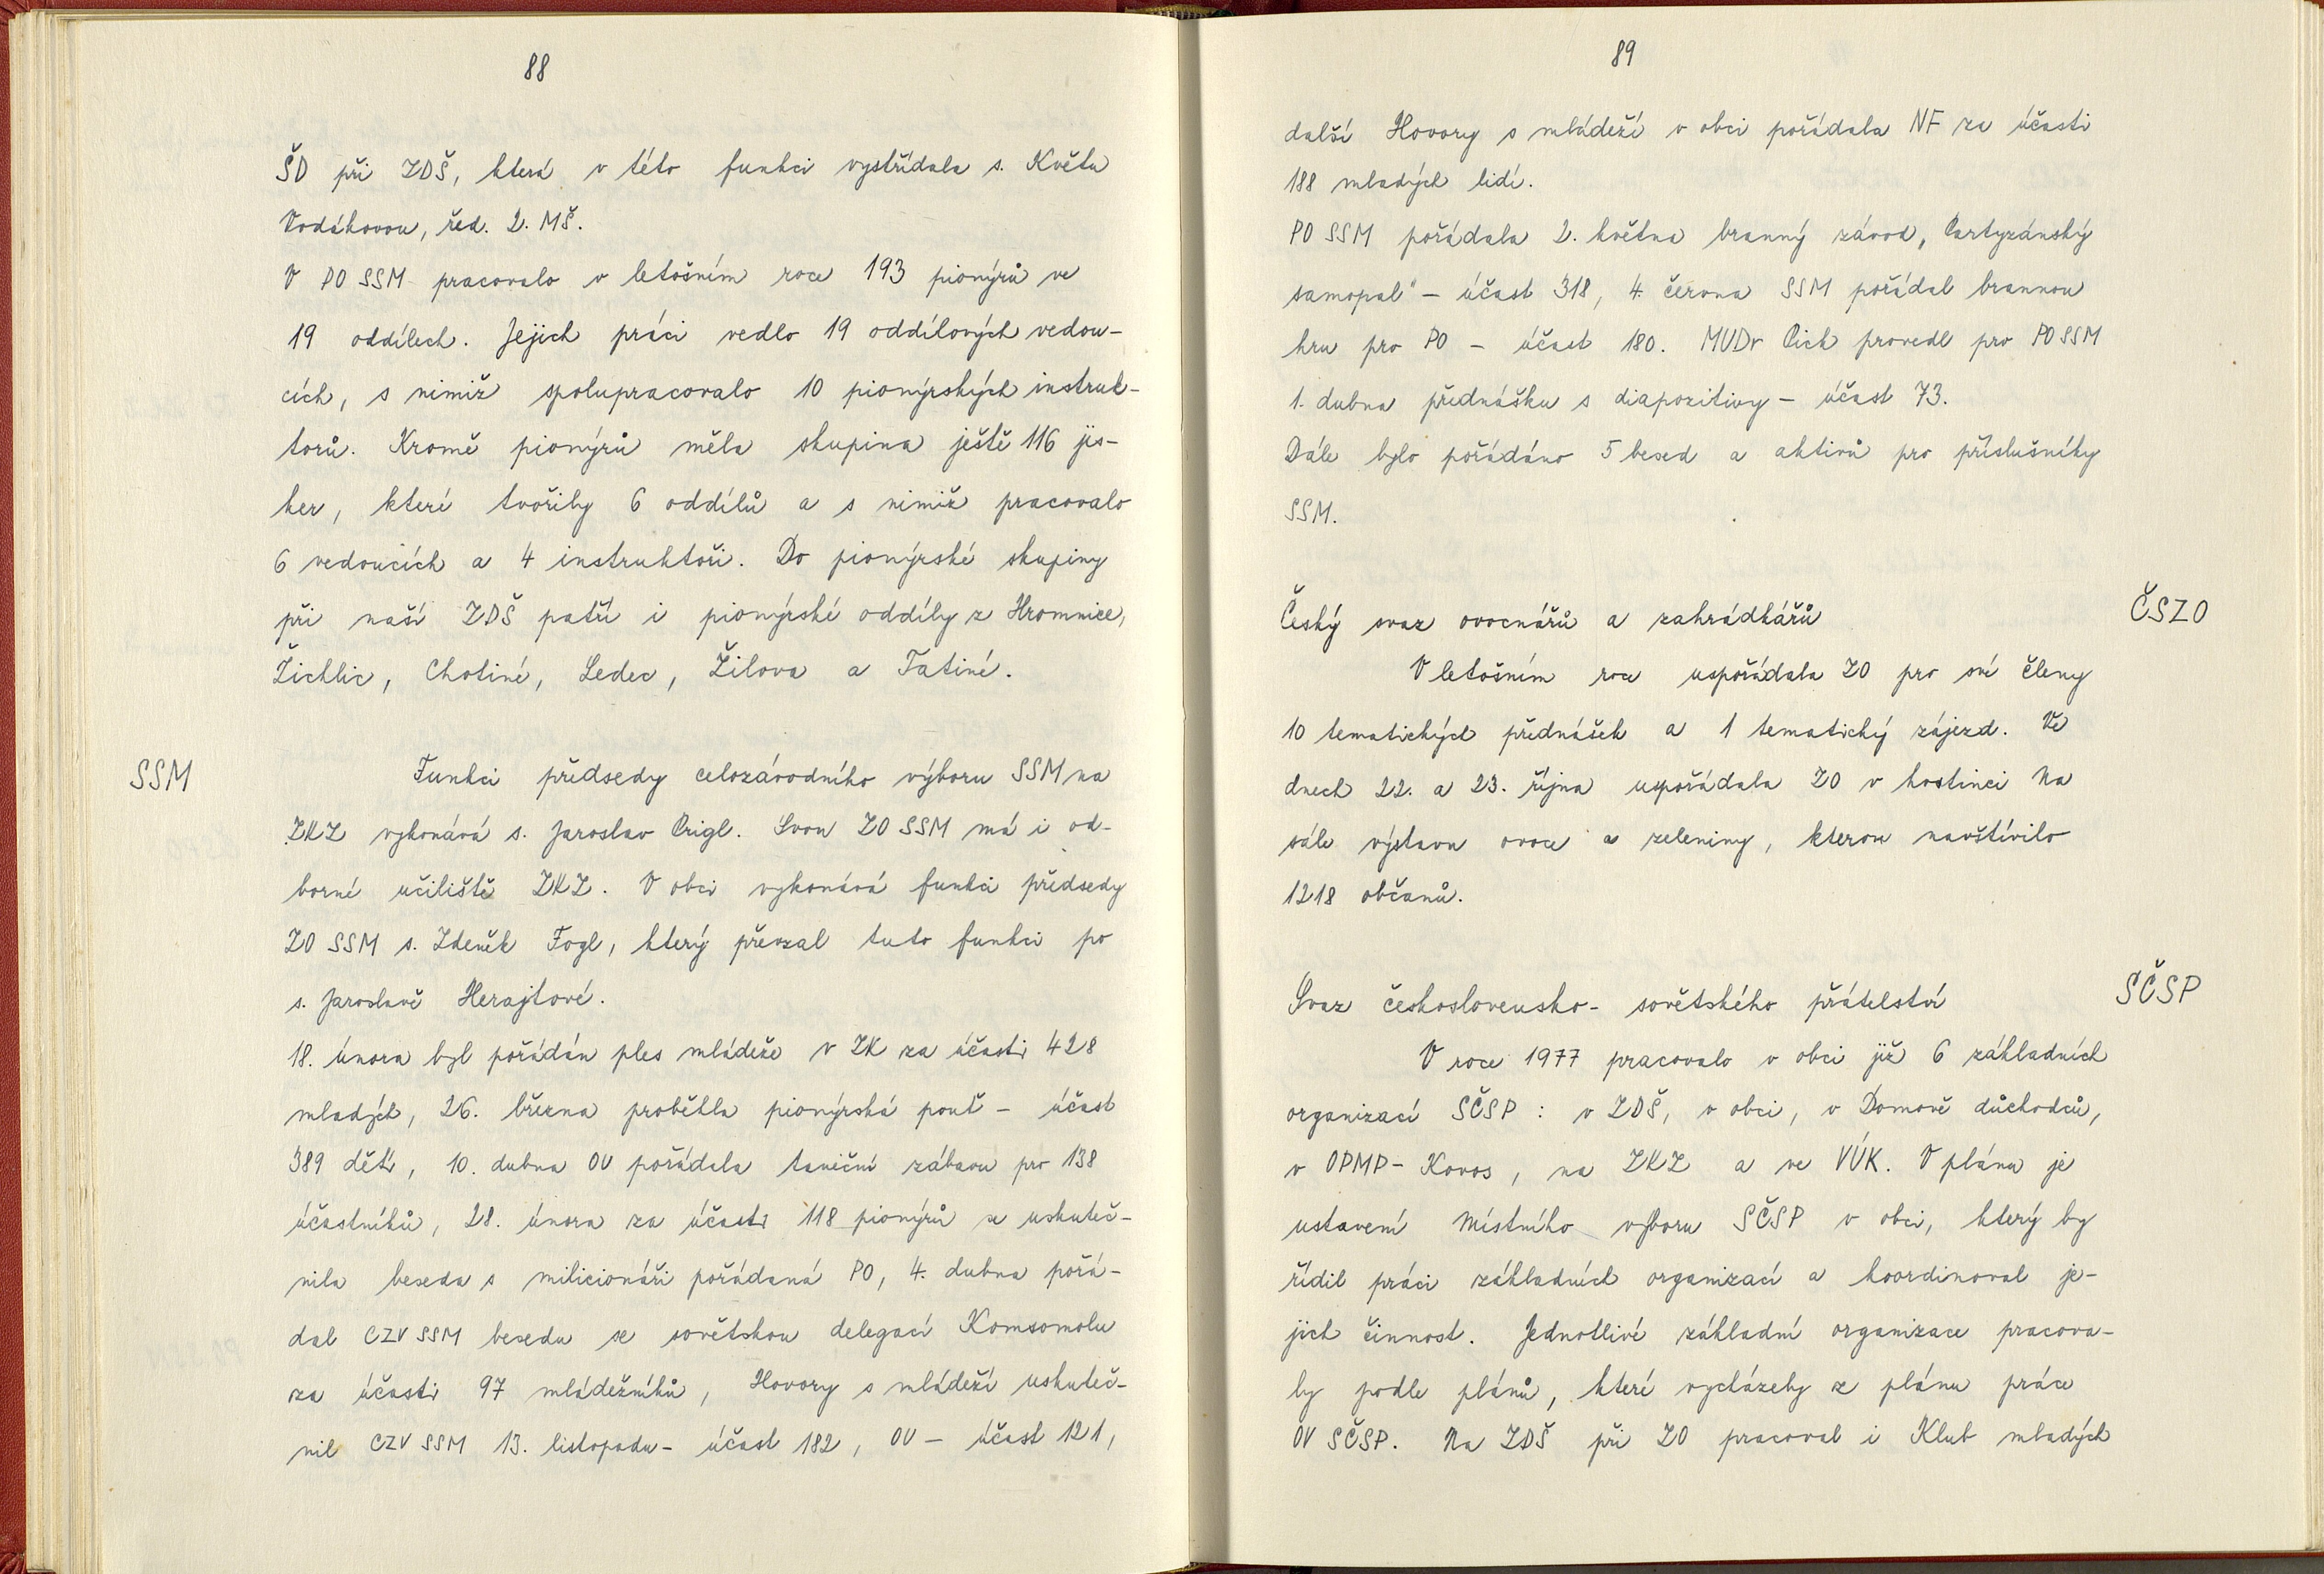 88
ŠD při ZDŠ, která v této funkci vystřídala s. Květu
Vodákovou, řed. 2. MŠ.
V PO SSM pracovalo v letošním roce 193 pionýrů ve
19 oddílech. Jejich práci vedlo 19 oddílových vedou-
cích, s nimiž spolupracovalo 10 pionýrských instruk-
torů. Kromě pionýrů měla skupina ještě 116 jis-
ker, které tvořily 6 oddílů a s nimiž pracovalo
6 vedoucích a 4 instruktoři. Do pionýrské skupiny
při naší ZDŠ patří i pionýrské oddíly z Hromnice,
Žichlic, Chotiné, Ledec, Žilova a Tatiné.
SSM
Funkci předsedy celozávodního výboru SSM na
ZKZ vykonává s. Jaroslav Prigl. Svou ZO SSM má i od-
borné učiliště ZKZ. V obci vykonává funkci předsedy
ZO SSM s. Zdeněk Fogl, který převzal tuto funkci po
s. Jaroslavě Herajtové.
18. února byl pořádán ples mládeže v ZK za účasti 428
mladých, 26. března proběhla pionýrská pouť - účast
389 dětí, 10. dubna OV pořádala taneční zábavu pro 138
účastníků, 28. února za účasti 118 pionýrů se uskuteč-
nila beseda s milicionáři pořádaná PO, 4. dubna pořá-
dal CZV SSM besedu se sovětskou delegací Komsomolu
za účasti 97 mládežníků, Hovory s mládeží uskuteč-
nil CZV SSM 13. listopadu - účast 182, OV - účast 121,
89
další Hovory s mládeží v obci pořádala NF za účasti
188 mladých lidí.
PO SSM pořádala 2. května branný závod „Partyzánský
samopal" - účast 318, 4. června SSM pořádal brannou
hru pro PO - účast 180. MUDr Pich provedl pro PO SSM
1. dubna přednášku s diapozitivy - účast 73.
Dále bylo pořádáno 5 besed a aktivů pro příslušníky
SSM.
Český svaz ovocnářů a zahrádkářů
ČSZO
V letošním roce uspořádala ZO pro své členy
10 tematických přednášek a 1 tematický zájezd. Ve
dnech 22. a 23. října uspořádala ZO v hostinci Na
sále výstavu ovoce a zeleniny, kterou navštívilo
1218 občanů.
Svaz československo-sovětského přátelství
SČSP
V roce 1977 pracovalo v obci již 6 základních
organizací SČSP: v ZDŠ, v obci, v Domově důchodců,
v OPMP - Kovos, na ZKZ a ve VÚK. V plánu je
ustavení Místního výboru SČSP v obci, který by
řídil práci základních organizací a koordinoval je-
jich činnost. Jednotlivé základní organizace pracova-
ly podle plánů, které vycházely z plánu práce
OV SČSP. Na ZDŠ při ZO pracoval i Klub mladých